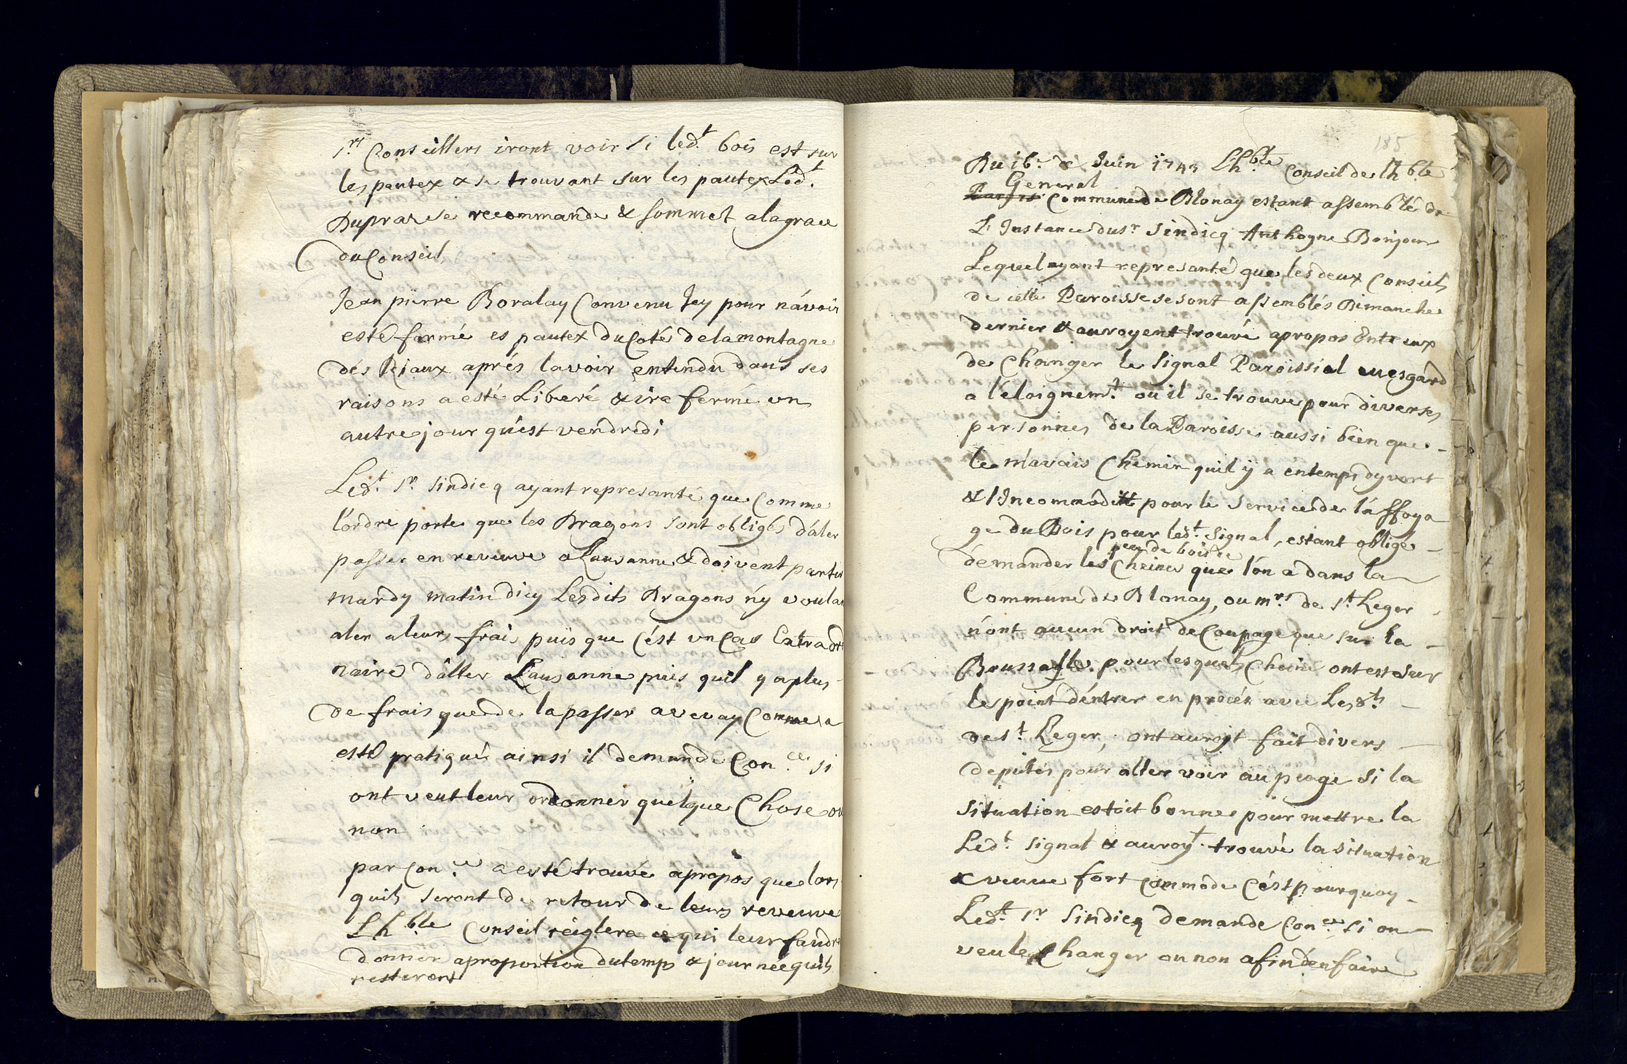 Srs Conseillers iront voir si ledt. bois est sur
les pautex & se trouvant sur les pautex Ledt.
Dupraz se recommande & sommet a la grace
du Conseil
Jean pierre Boralay Convenu Icy pour n'avoir
esté fermé es pautex du Coté de la montagne
des Riaux aprés lavoir entendu dans ses
raisons a esté Liberé & ira fermé un
autre jour qu'est vendredi
Ledt. Sr. Sindicq ayant represanté que Comme
l'ordre porte que les Dragons sont obligés d'aler
passer en reveuve a Lausanne & doivent partir
mardy matin dicy Lesdits Dragons n'y voulan
aler a leurs frais puis que c'ést un Cas Extraord
naire d'aller a Lausanne puis quil y a plus
de frais que de la passer a vevay Comme a
esté pratiqué ainsi il demande Con.ce si
ont veut leur ordonner quelque Chose ou
non
par Con.ce a esté trouvé apropos que lors
quils seront de retour de leurs reveuve
Lhble Conseil réiglera ce qui leur faudra
donner a proportion du temps & journee quils
resteront
185
Du 16e de Juin 1745 Lhble Conseil de Lhble
General
Commune de Blonay estant assemblés de
L'Instance du Sr Sindicq Anthoyne Bonjour
Lequel ayant represanté que les deux Conseils
de cette Paroisse se sont assemblés Dimanche
dernier & auroyent trouvé apropos Entr eux
de Changer le Signal Paroissial eu esgard
a l'éloignemt. ou il se trouve pour diverses
personnes de la Paroisse aussi bien que
le mauvais Chemin quil y a en temps dyvert
& l'Incommodité pour le service de l'affoya
ge du Bois pour ledt. Signal, estant oblige
peu de bois de
demander les Cheines que l'on a dans la
Commune de Blonay, ou mrs de St. Leger
n'ont aucun droit de Coupage que sur la
Broussaille pour lesquels Cheine ont est sur
le point d'éntrer en procés avec Lesdts
de St. Leger, ont auroyt fait divers
deputés pour aller voir au peage si la
situation estoit bonne pour mettre la
Ledt. Signal & auroyt. trouvé la situation
& veuue fort commode C'ést pourquoy
Ledt. Sr Sindicq demande Con.ce si on
veule Changer ou non afin d'en faire